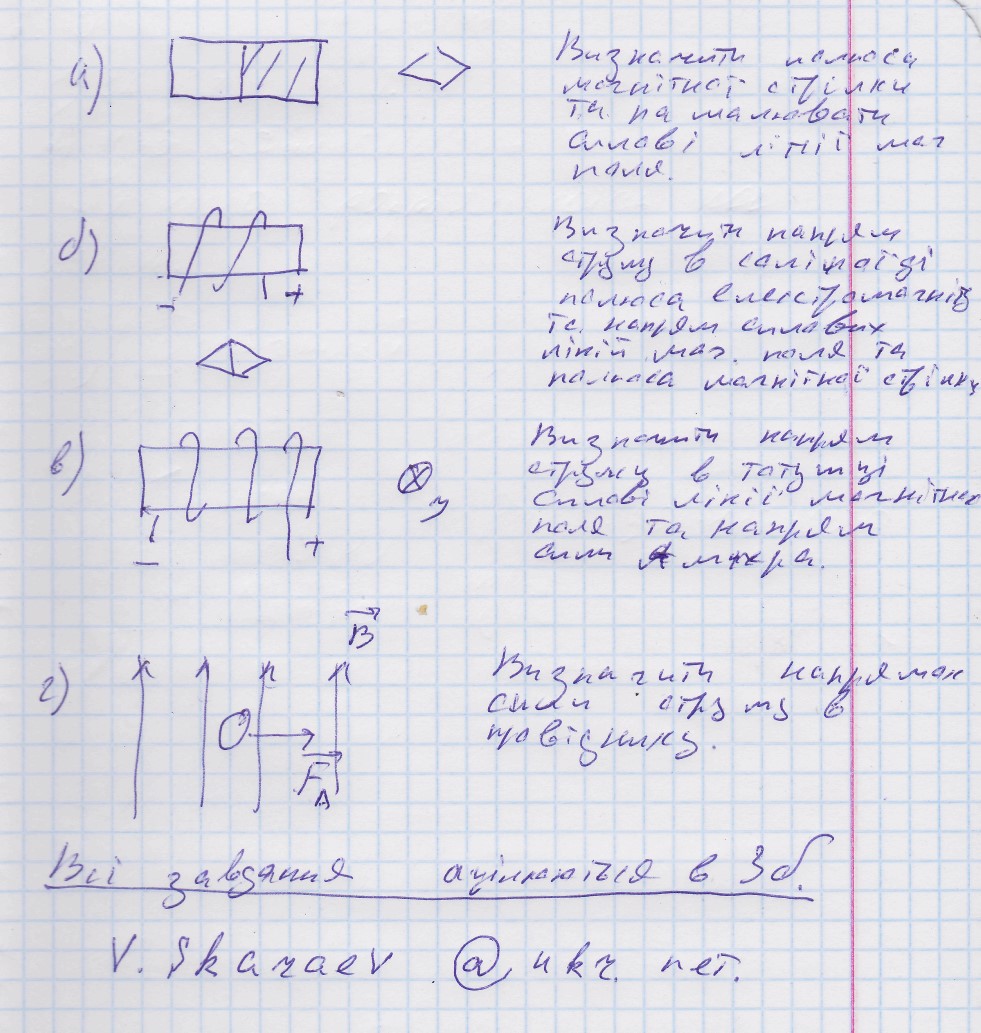 а) Визначити полюса
магнітної стрілки
та намалювати
силові лінії маг
поля.
б) Визначити напрям
струму в саліноїді
полюса електромагніту
та напрям силових
ліній маг. поля та
полюса магнітної стрілки
- +
в) Визначити напрям
струму в татушці
силові лінії магнітного
поля та напрям
сили Ампера.
- +
г) Визначити напрямок
сили струму в
провіднику.
B
F_A
Всі завдання оцінюються в 3б.
V. Skazaev @ ukr. net.